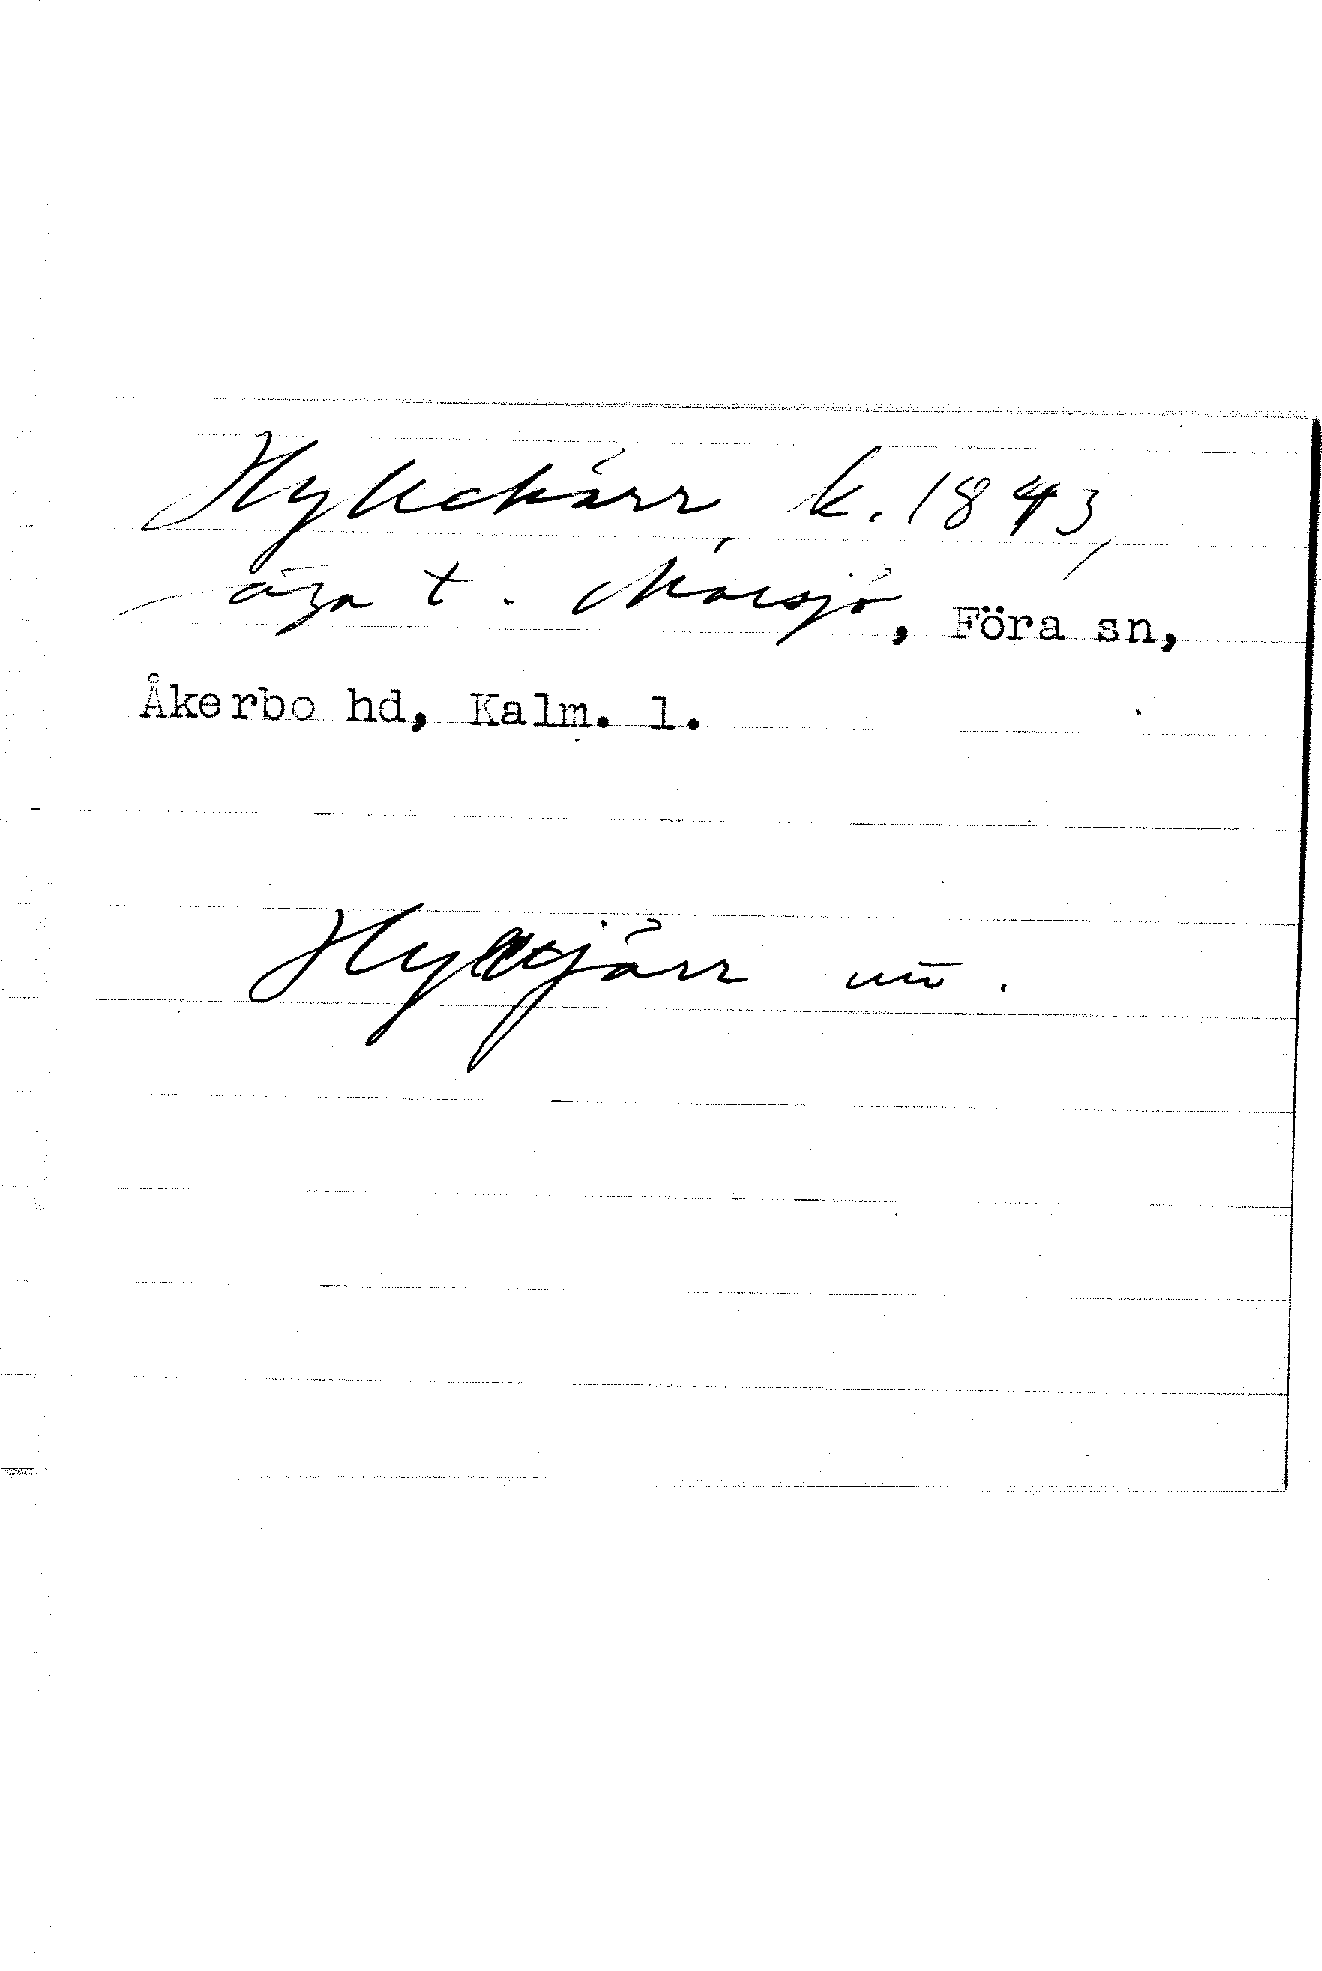 Hyllekärr, k. 1843,
äga t. Marsjö, Föra sn,
Åkerbo hd, Kalm. l.
Hylkjärr